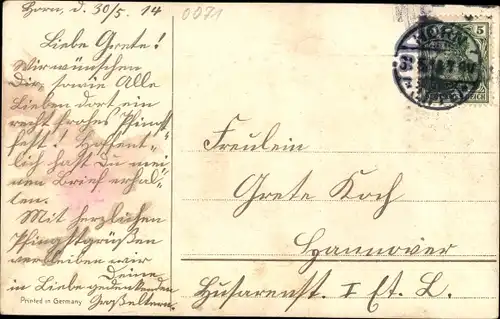 Horn, d. 30/5. 14
0071
Liebe Grete!
Wir wünschen
Dir, sowie Alle
Lieben dort ein
recht frohes Pfingst-
fest! Hoffent-
lich hast Du mei-
nen Brief erhal-
ten.
Mit herzlichen
Pfingstgrüßen
verbleiben wir
Deine
in Liebe gedenkenden
Großeltern.
Printed in Germany
HORN
5
REICH
Freulein
Grete Koch
Hannover
Husarenst. I Et. L.